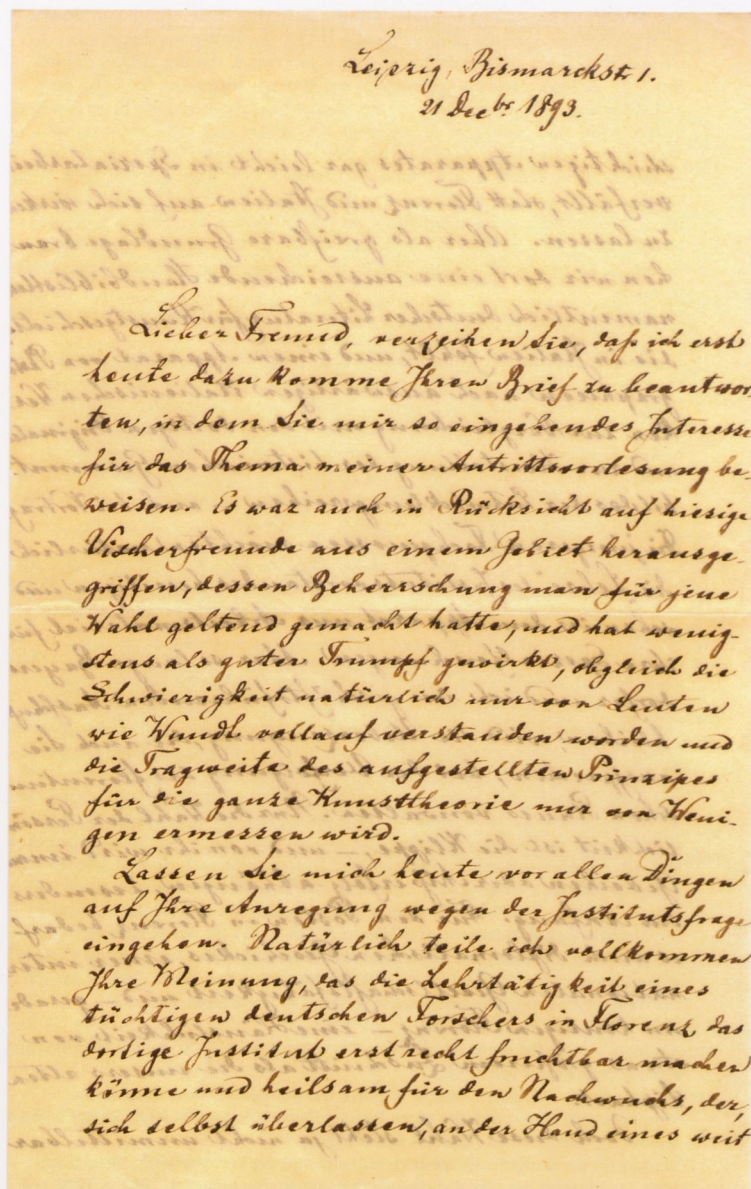 Leipzig, Bismarckstr 1.
21 Decbr 1893.
Lieber Freund, verzeihen Sie, daß ich erst
heute dazu komme Ihren Brief zu beantwor-
ten, in dem Sie mir so eingehendes Interesse
für das Thema meiner Antrittsvorlesung be-
weisen. Es war auch in Rücksicht auf hiesige
Vischerfreunde aus einem Gebiet herausge-
griffen, dessen Beherrschung man für jene
Wahl geltend gemacht hatte, und hat wenig-
stens als guter Trumpf gewirkt, obgleich die
Schwierigkeit natürlich nur von Leuten
wie Wundt vollauf verstanden worden und
die Tragweite des aufgestellten Prinzipes
für die ganze Kunsttheorie nur von Weni-
gen ermessen wird.
Lassen Sie mich heute vor allen Dingen
auf Ihre Anregung wegen der Institutsfrage
eingehen. Natürlich teile ich vollkommen
Ihre Meinung, das die Lehrtätigkeit eines
tüchtigen deutschen Forschers in Florenz das
dortige Institut erst recht fruchtbar machen
könne und heilsam für den Nachwuchs, der,
sich selbst überlassen, an der Hand eines weit